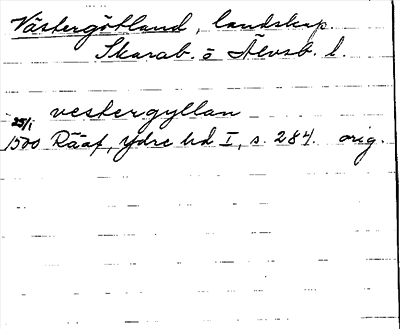 Västergötland, landskap.
Skarab. o Älvsb. l.
vestergyllan
25/1
1500 Rääf, Ydre hd I, s. 284. orig.